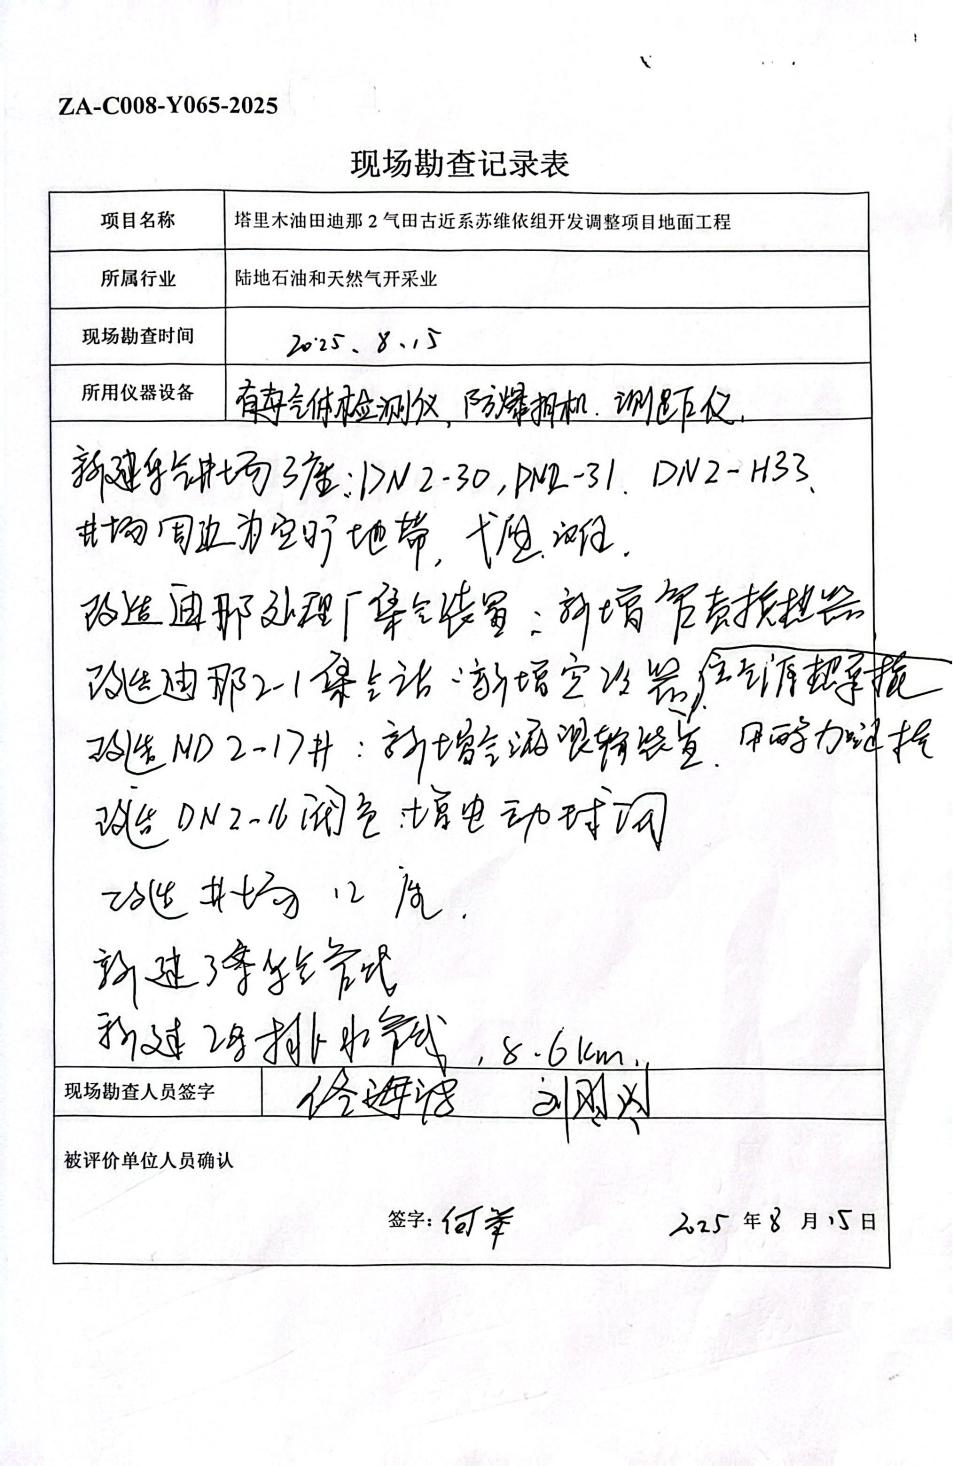 ZA-C008-Y065-2025
现场勘查记录表
项目名称 塔里木油田迪那 2 气田古近系苏维依组开发调整项目地面工程
所属行业 陆地石油和天然气开采业
现场勘查时间 2025、8、15
所用仪器设备 有毒气体检测仪, 防爆相机. 测距仪.
新建单井井场3座:DN2-30, DN2-31. DN2-H33、
井场周边为空旷地带,
改造迪那处理厂集气装置:新增管壳换热器
改造迪那2-1集气站:新增空冷器,
改造 DN2-17井:新增气液混输装置.
改造 DN2-16阀室:增电动球阀
改造井场 12 座.
新建3条集气管线
新建2条排水管线, 8.6km.
现场勘查人员签字
被评价单位人员确认
签字: 2025 年 8 月 15 日